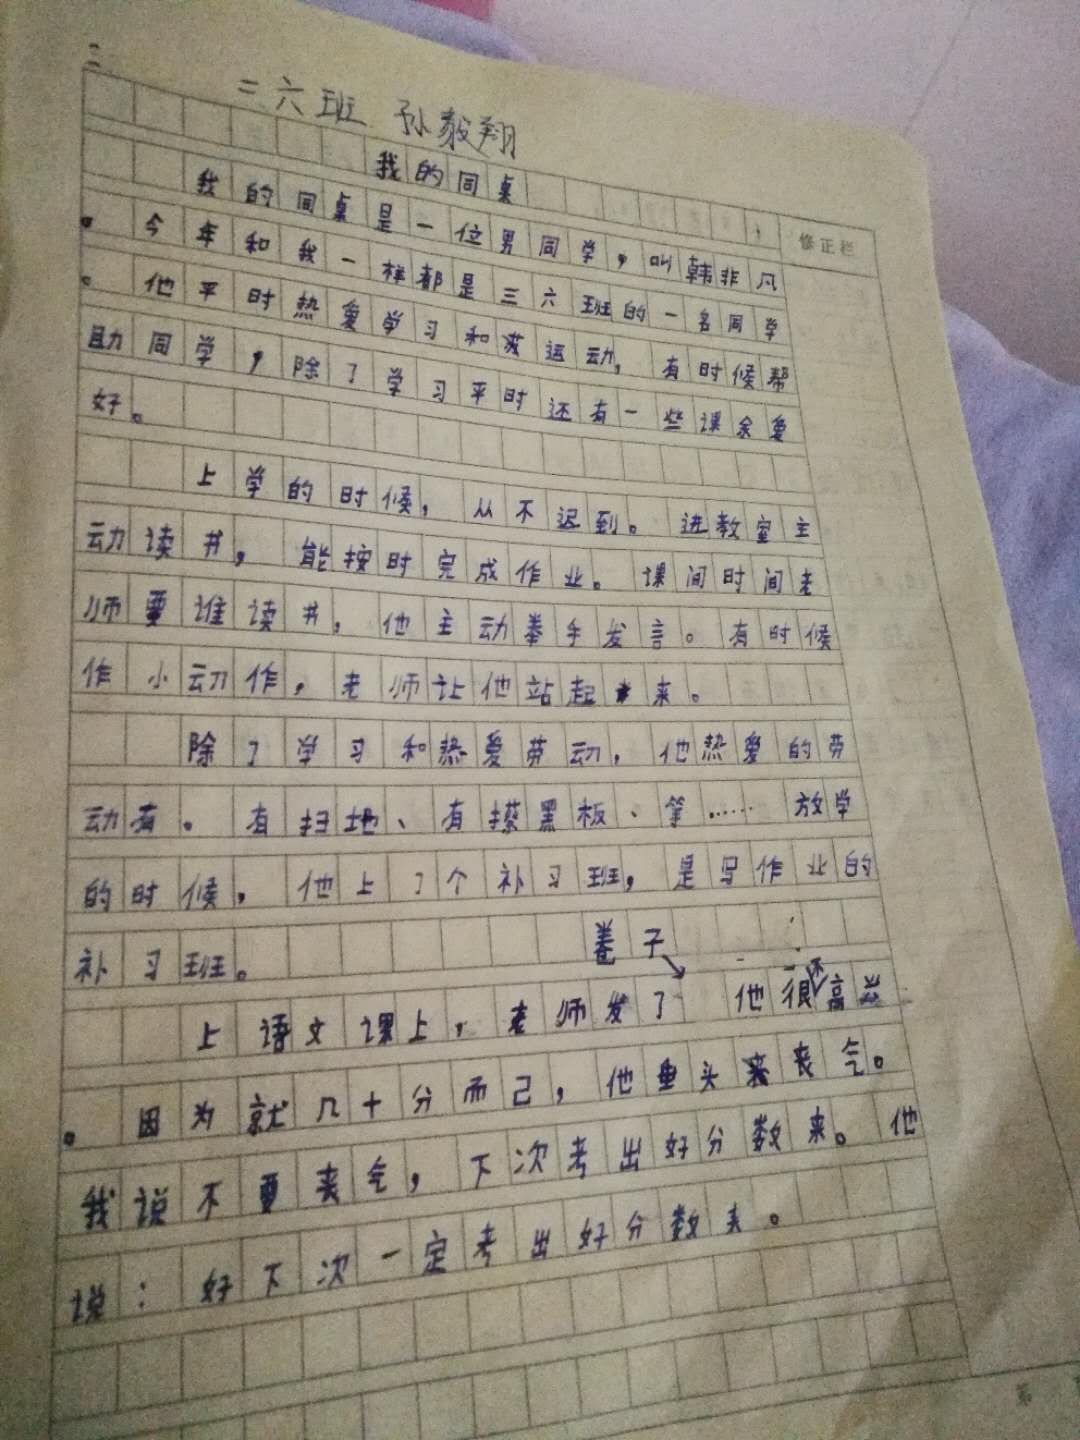 三六班 孙毅翔
我的同桌
修正栏
我的同桌是一位男同学，叫韩非凡
。今年和我一样都是三六班的一名同学
。他平时热爱学习和爱运动，有时候帮
助同学，除了学习平时还有一些课余爱
好。
上学的时候，从不迟到。进教室主
动读书，能按时完成作业。课间时间老
师要谁读书，他主动举手发言。有时候
作小动作，老师让他站起来。
除了学习和热爱劳动，他热爱的劳
动有。有扫地、有擦黑板、等……放学
的时候，他上了个补习班，是写作业的
补习班。
卷子
上语文课上，老师发了 他很不高兴
。因为就几十分而己，他垂头丧气。
我说不要丧气，下次考出好分数来。他
说：好下次一定考出好分数来。
第